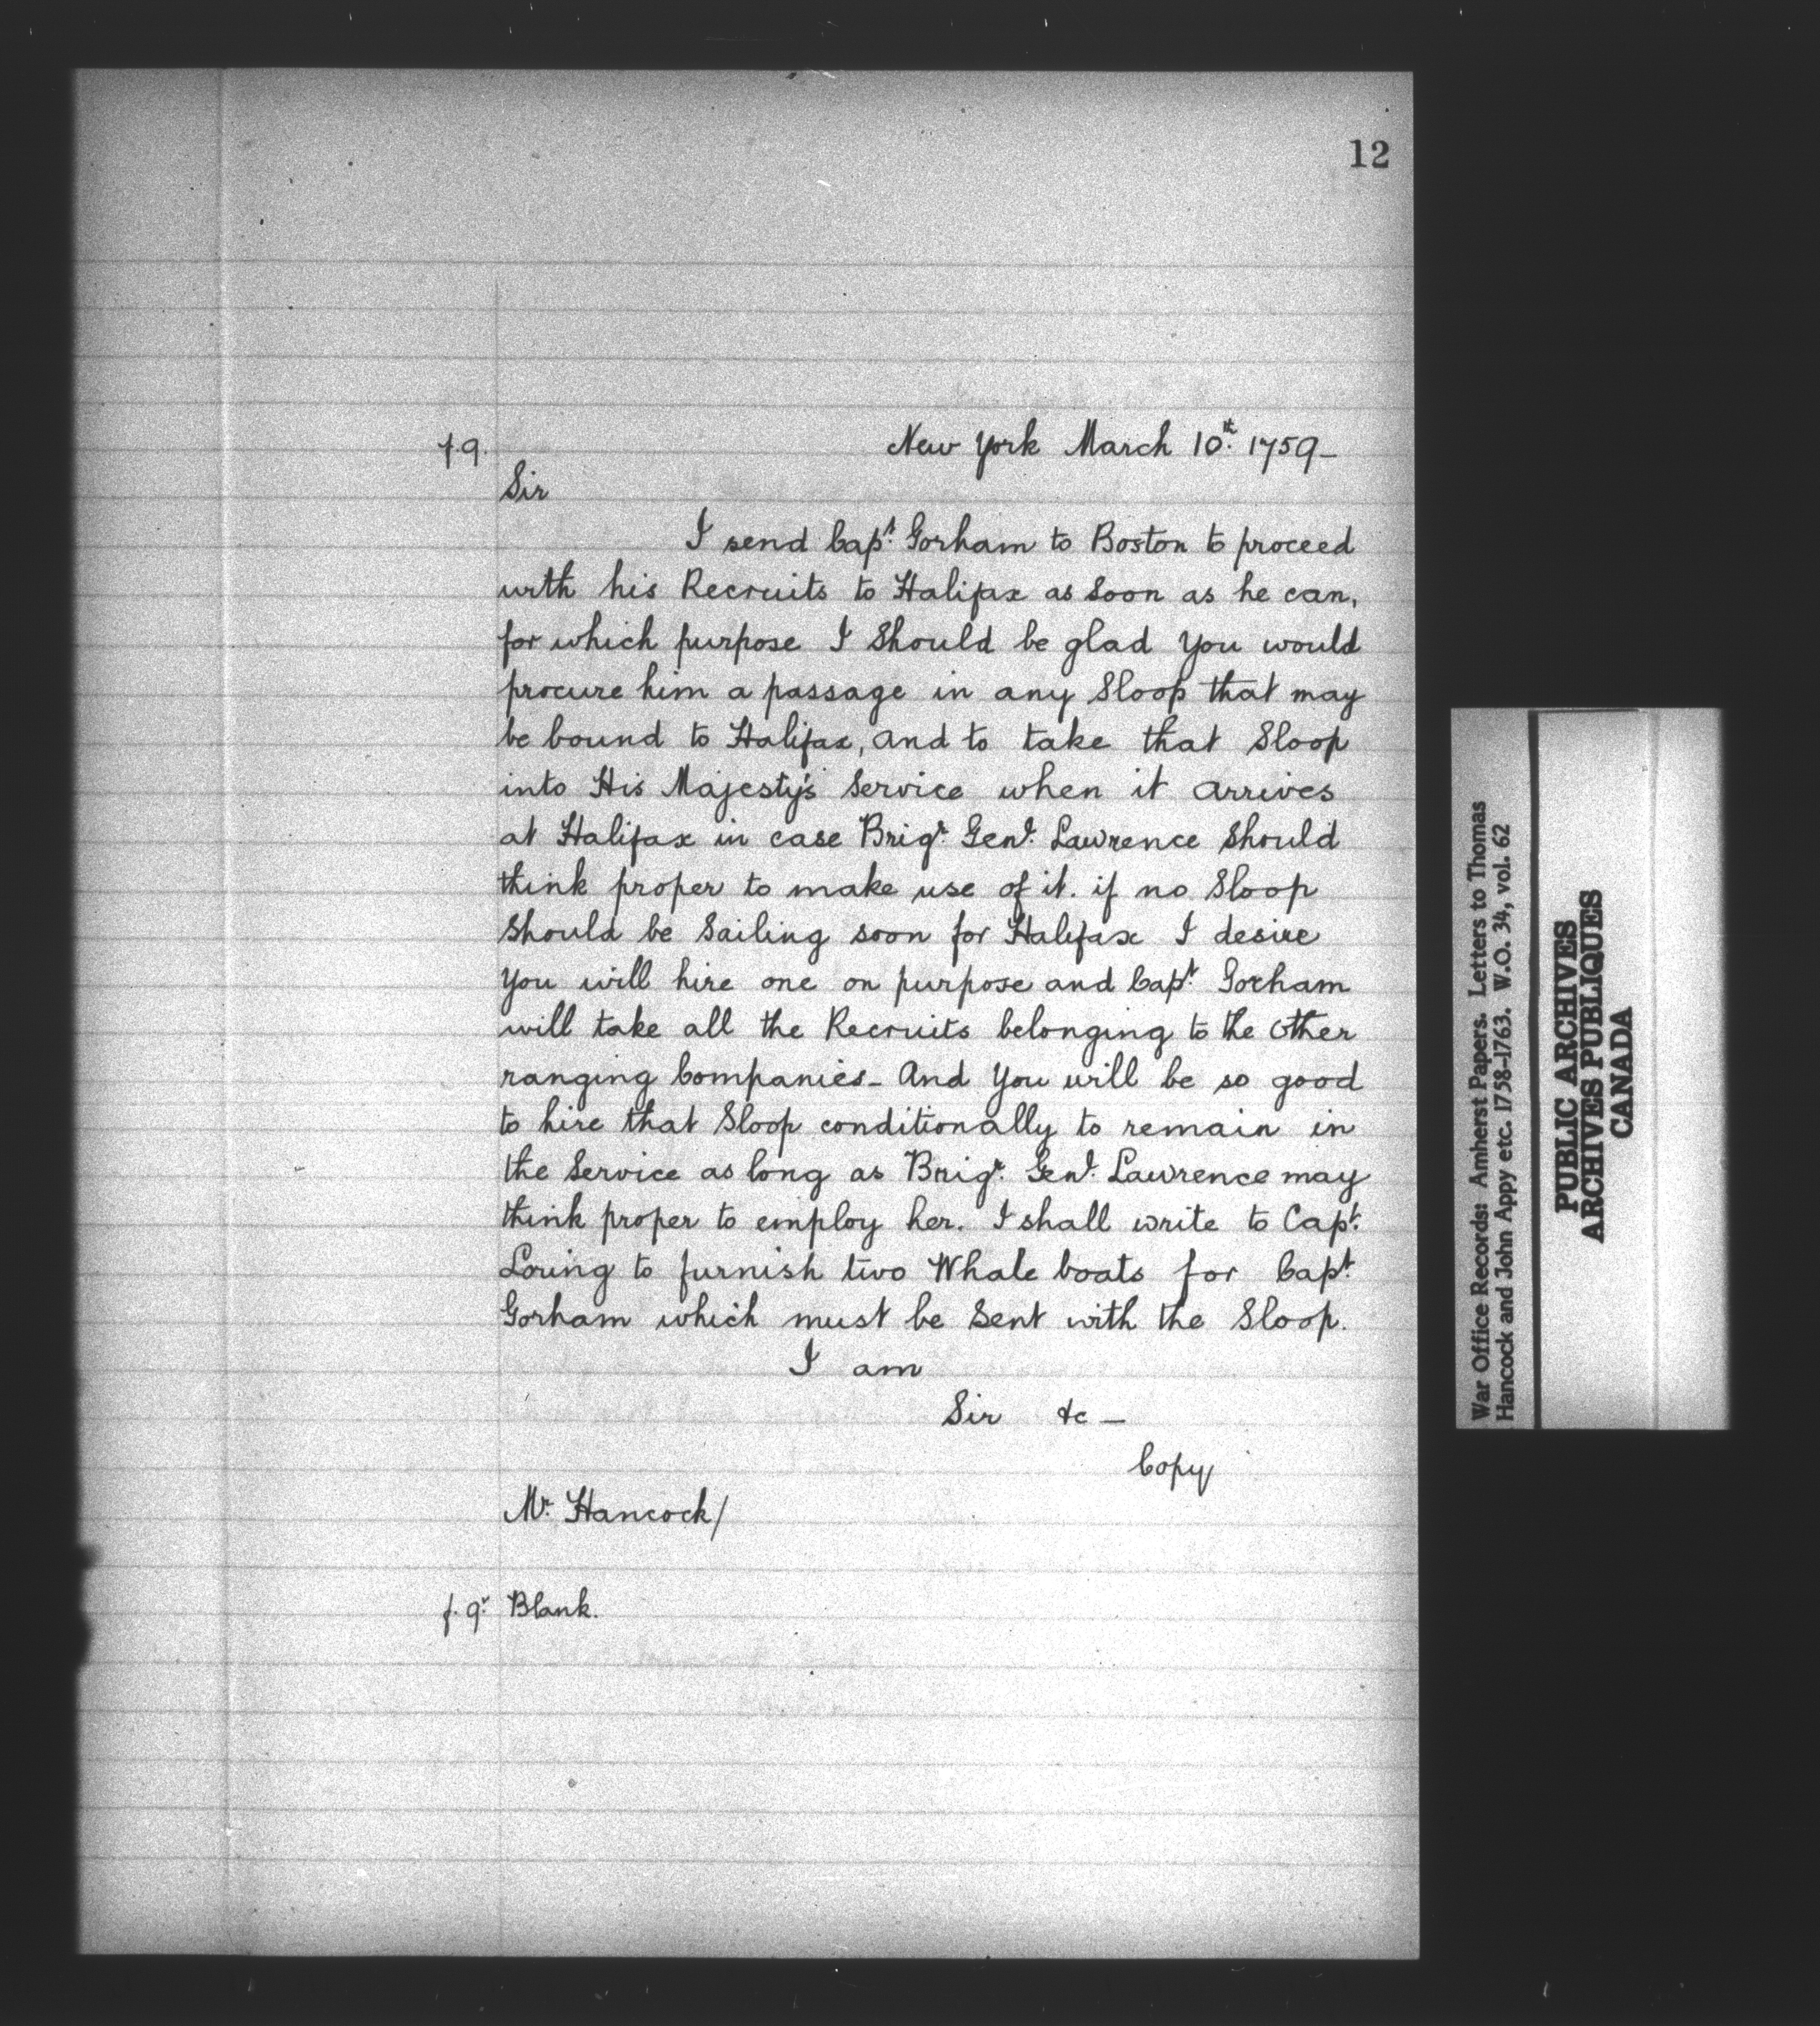 12
f.9. New York March 10th. 1759_
Sir
I send Capt. Gorham to Boston to proceed
with his Recruits to Halifax as Soon as he can,
for which purpose I Should be glad You would
procure him a passage in any Sloop that may
be bound to Halifax, and to take that Sloop
into His Majesty's Service when it arrives
at Halifax in case Brigr. Genl. Lawrence Should
think proper to make use of it. if no Sloop
Should be Sailing soon for Halifax I desire
You will hire one on purpose and Capt. Gorham
will take all the Recruits belonging to the other
ranging Companies_ And You will be so good
to hire that Sloop conditionally to remain in
the Service as long as Brigr. Genl. Lawrence may
think proper to employ her. I shall write to Capt.
Loring to furnish two Whale boats for Capt.
Gorham which must be Sent with the Sloop.
I am
Sir &c _
Copy
Mr. Hancock/
f. 9v. Blank.
War Office Records: Amherst Papers. Letters to Thomas
Hancock and John Appy etc. 1758-1763. W.O. 34, vol. 62
PUBLIC ARCHIVES
ARCHIVES PUBLIQUES
CANADA